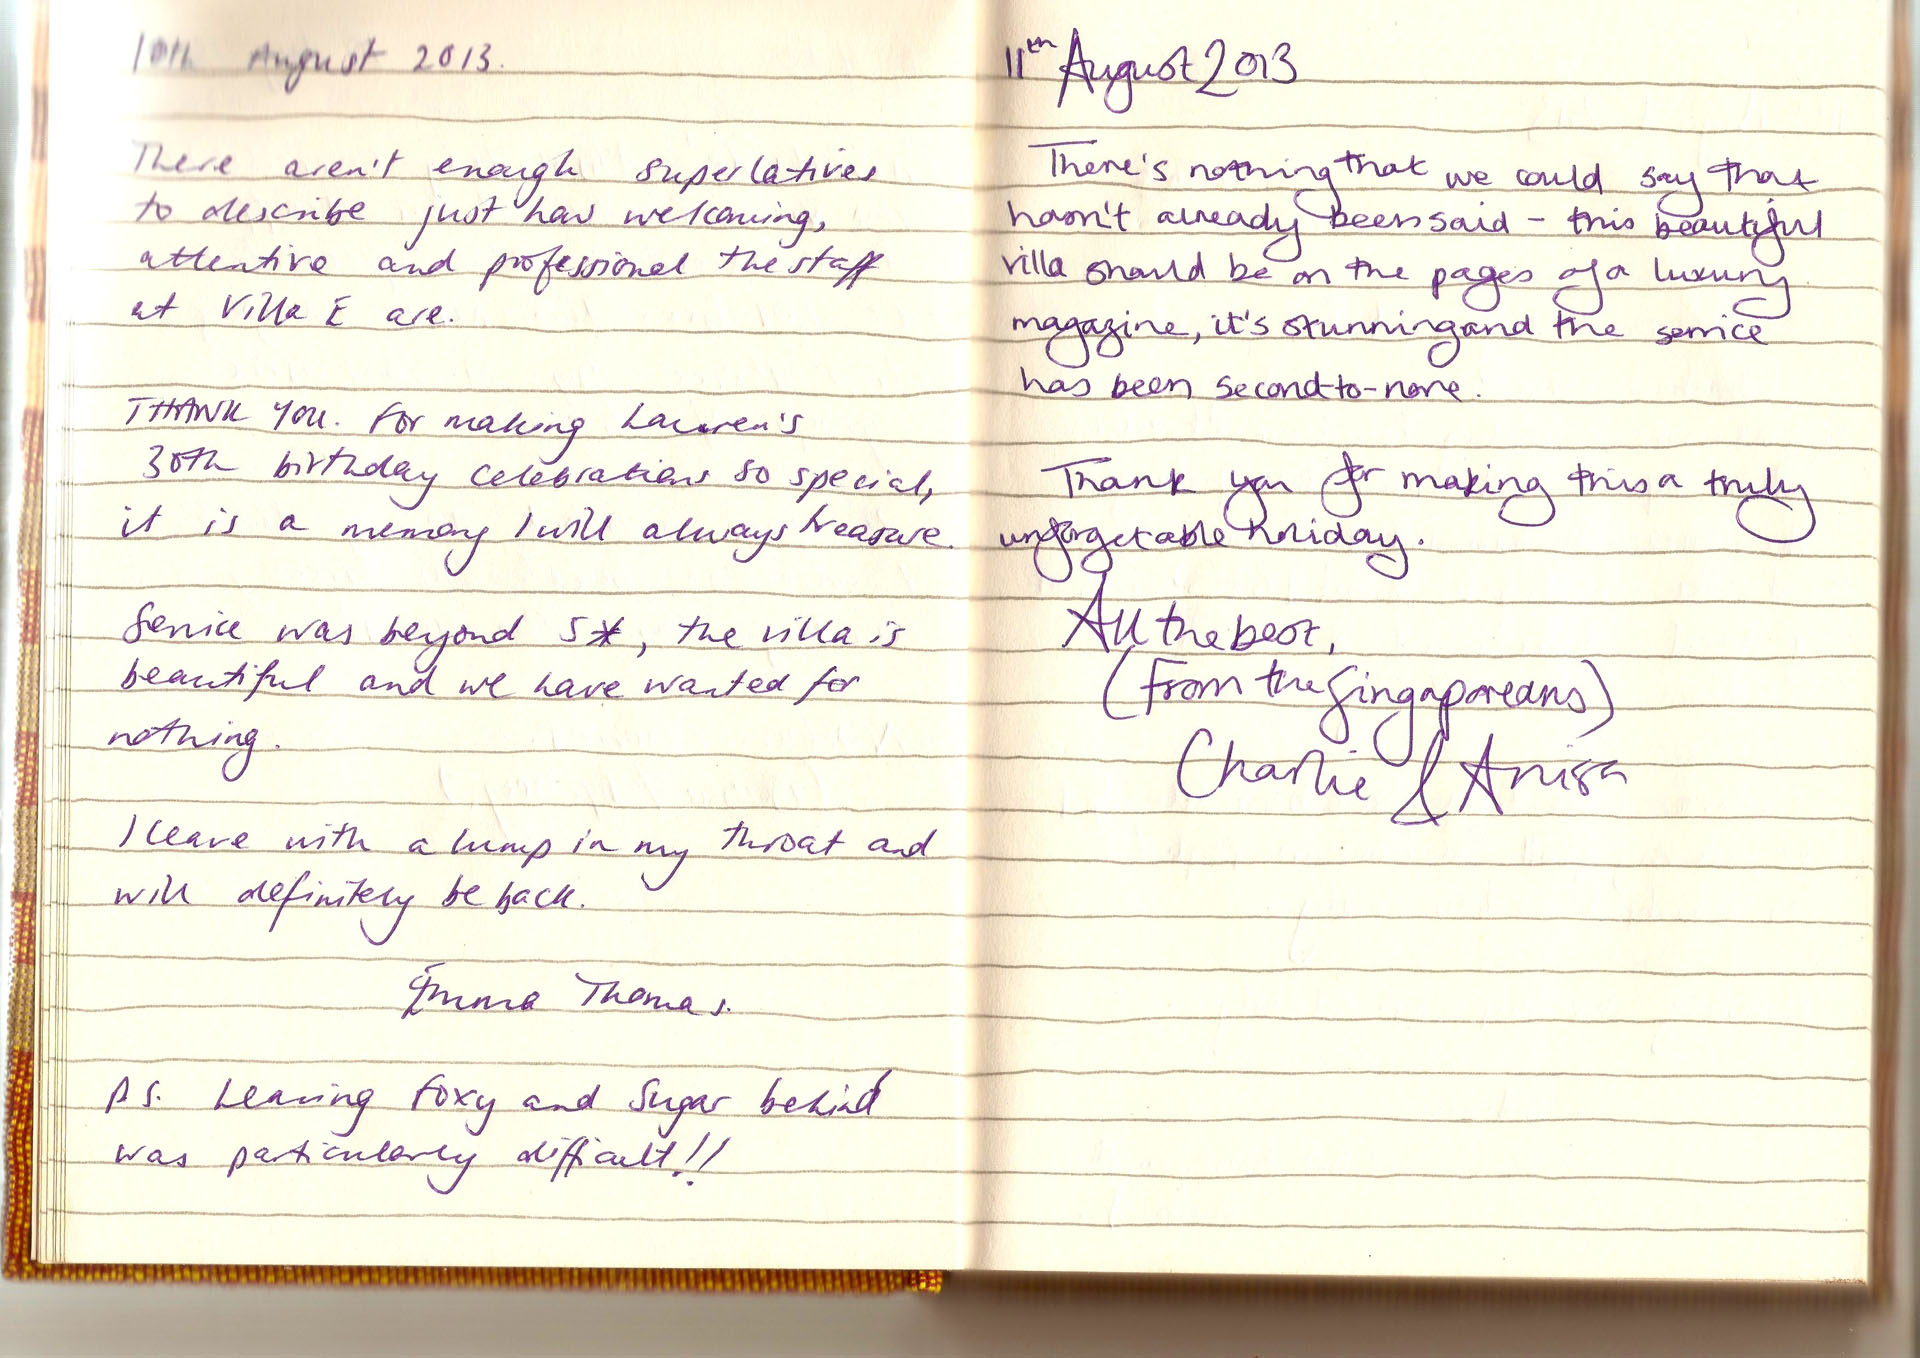 10th August 2013.
There aren't enough superlatives
to describe just how welcoming,
attentive and professional the staff
at Villa E are.
THANK YOU. For making Lauren's
30th birthday celebrations so special,
it is a memory I will always treasure.
Service was beyond 5*, the villa is
beautiful and we have wanted for
nothing.
I leave with a lump in my throat and
will definitely be back.
Emma Thomas.
P.S. Leaving Foxy and Sugar behind
was particularly difficult!!
11th August 2013
There's nothing that we could say that
hasn't already been said - this beautiful
villa should be on the pages of a luxury
magazine, it's stunning and the service
has been second-to-none.
Thank you for making this a truly
unforgetable holiday.
All the best,
(From the Singaporeans)
Charlie & Anisa